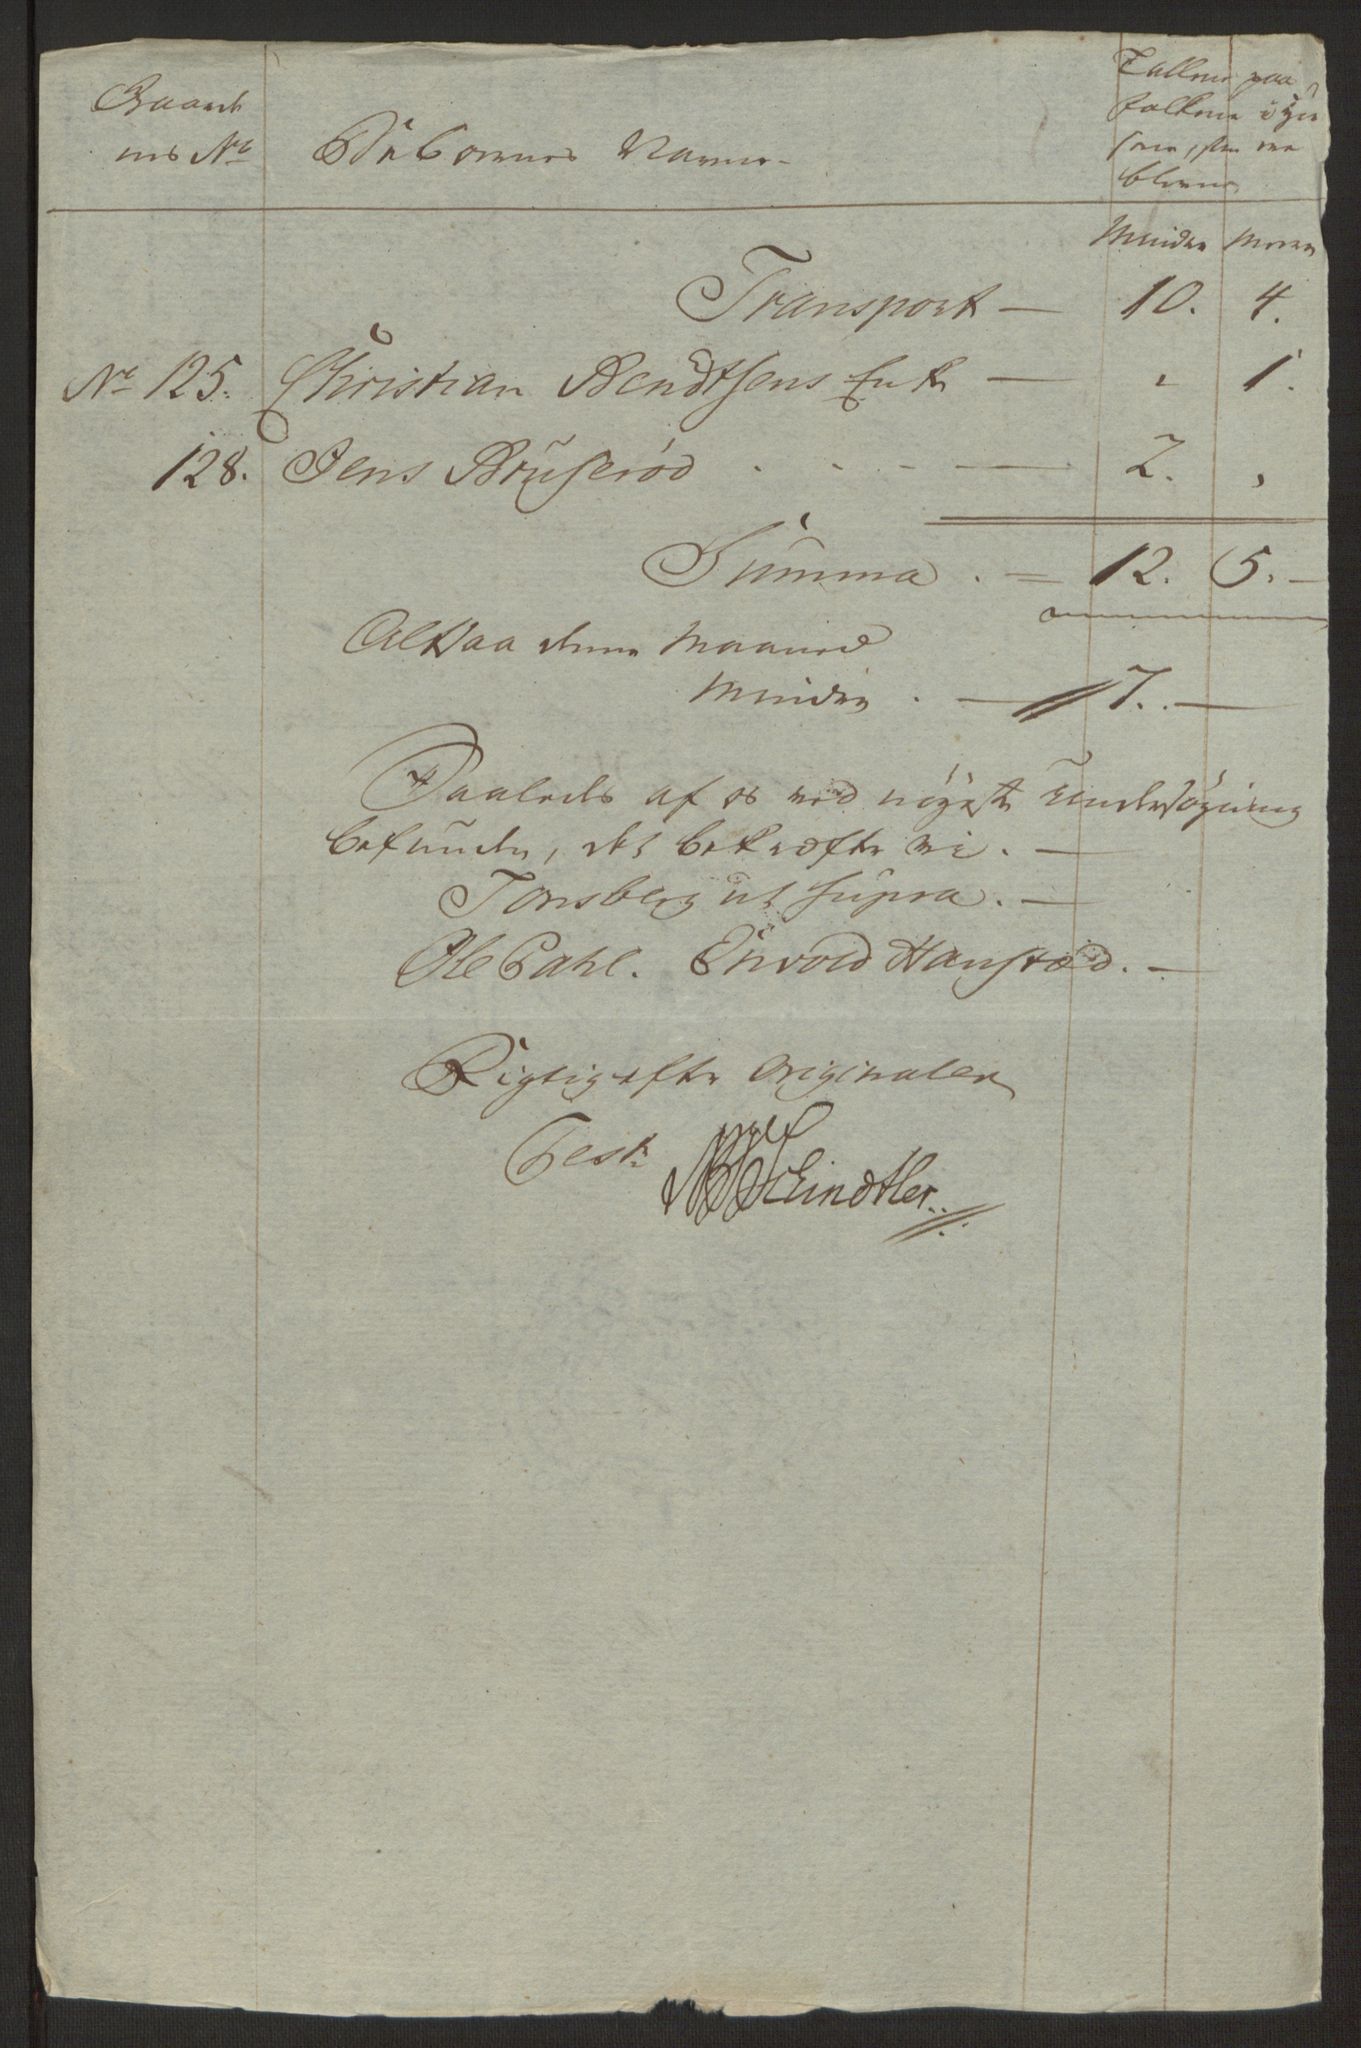 Gaard
nes No
Beboernes Navne.
Tallene paa
Folkene i Hu
sene, som ere
blevne
Mindre Meere
Transport — 10. 4.
No 125. Christian Bendtsens Enke — „ 1.
128. Jens Bruserød . . . — 2. „
Summa . = 12. 5. —
Altsaa denne Maaned
Mindre . — 7. —
Saaledes af os ved nøyeste Undersøgning
befunden, det bekræfter vi. —
Tonsberg ut supra. —
Ole Dahl. Envold Hansrød. —
Rigtig efter Originalen
Test.
Lindtler